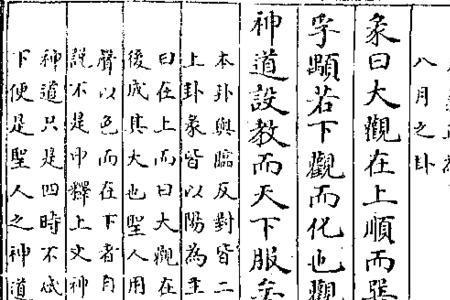 八月之卦
彖曰大觀在上順而巽
孚顒若下觀而化也觀
神道設教而天下服矣
本卦與臨反對皆二
上卦彖皆以陽為主
曰在上而曰大觀在
後成其大也聖人用
聲以色而在下者自
說不是申釋上文神
神道只是四時不忒
下便是聖人之神道